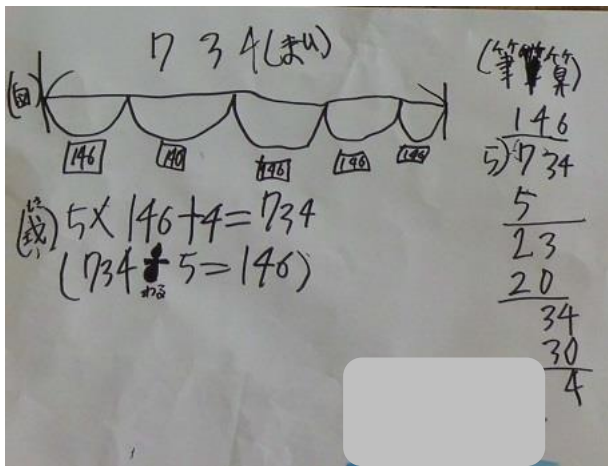 734(まい)
(図)
146 140 146 146 146
(式) 5×146+4=734
しき
(734÷5=146)
わる
(筆算)
146
5)734
5
23
20
34
30
4